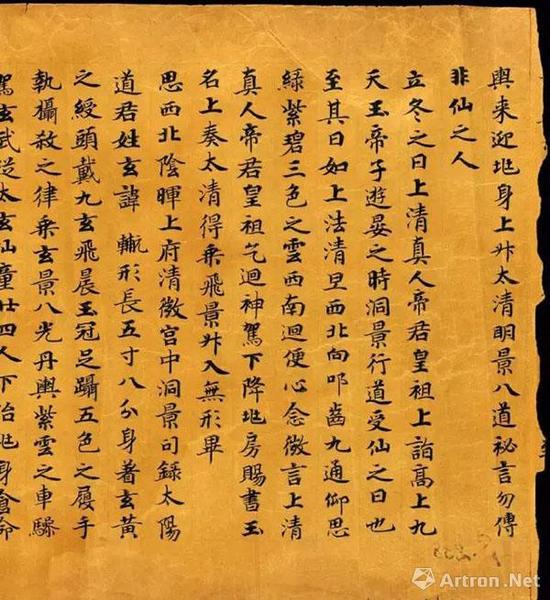 輿来迎兆身上升太清明景八道祕言勿傳
非仙之人
立冬之日上清真人帝君皇祖上詣高上九
天玉帝子遊晏之時洞景行道受仙之日也
至其日如上法清旦西北向叩齒九通仰思
緑紫碧三色之雲西南迴便心念微言上清
真人帝君皇祖乞迴神駕下降兆房賜書玉
名上奏太清得乘飛景升入無形畢
思西北陰暉上府清微宮中洞景司録太陽
道君姓玄諱形長五寸八分身著玄黄
之綬頭戴九玄飛晨玉冠足躡五色之履手
執攝殺之律乘玄景八光丹輿紫雲之車驂
駕玄武從太玄仙童廿四人下治兆身命
Artron.Net